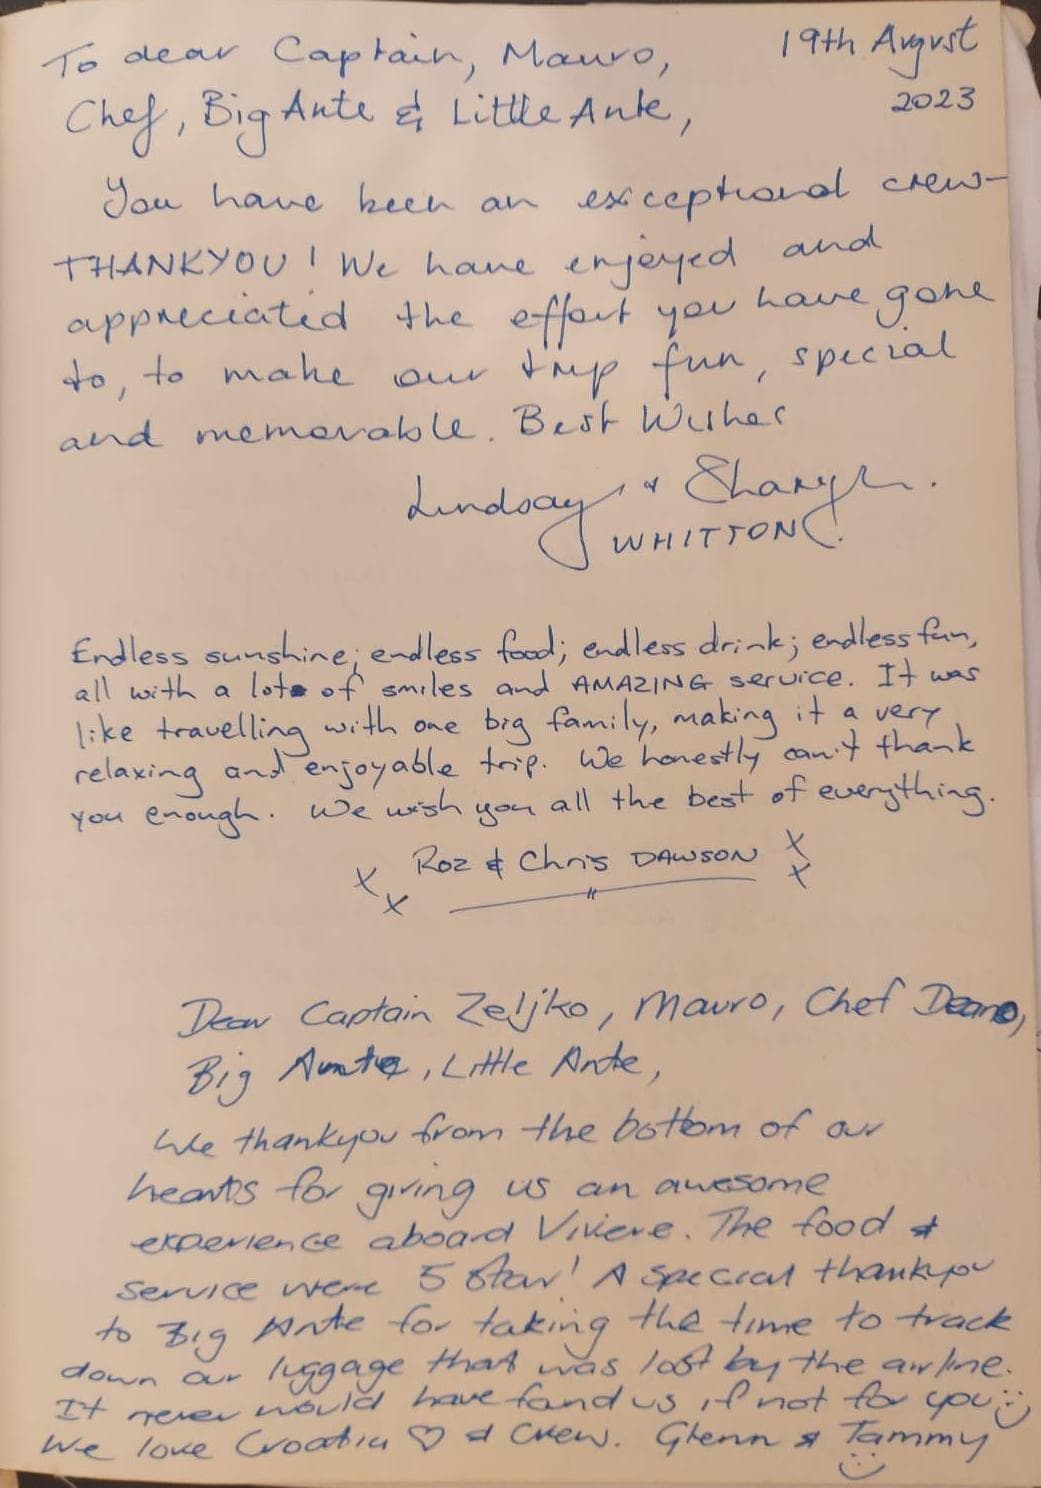 To dear Captain, Mauro, 19th August
Chef, Big Ante & Little Ante, 2023
You have been an exceptional crew-
THANKYOU! We have enjoyed and
appreciated the effort you have gone
to, to make our trip fun, special
and memorable. Best Wishes
Lindsay & Sharyn.
WHITTON.
Endless sunshine; endless food; endless drink; endless fun,
all with a lot of smiles and AMAZING service. It was
like travelling with one big family, making it a very
relaxing and enjoyable trip. We honestly can't thank
you enough. We wish you all the best of everything.
X Roz & Chris DAWSON X
X X
Dear Captain Zeljko, Mauro, Chef Deano,
Big Ante, Little Ante,
We thankyou from the bottom of our
hearts for giving us an awesome
experience aboard Viviere. The food &
service were 5 star! A special thankyou
to Big Ante for taking the time to track
down our luggage that was lost by the airline.
It never would have found us if not for you :)
We love Croatia ♡ & Crew. Glenn & Tammy
:)